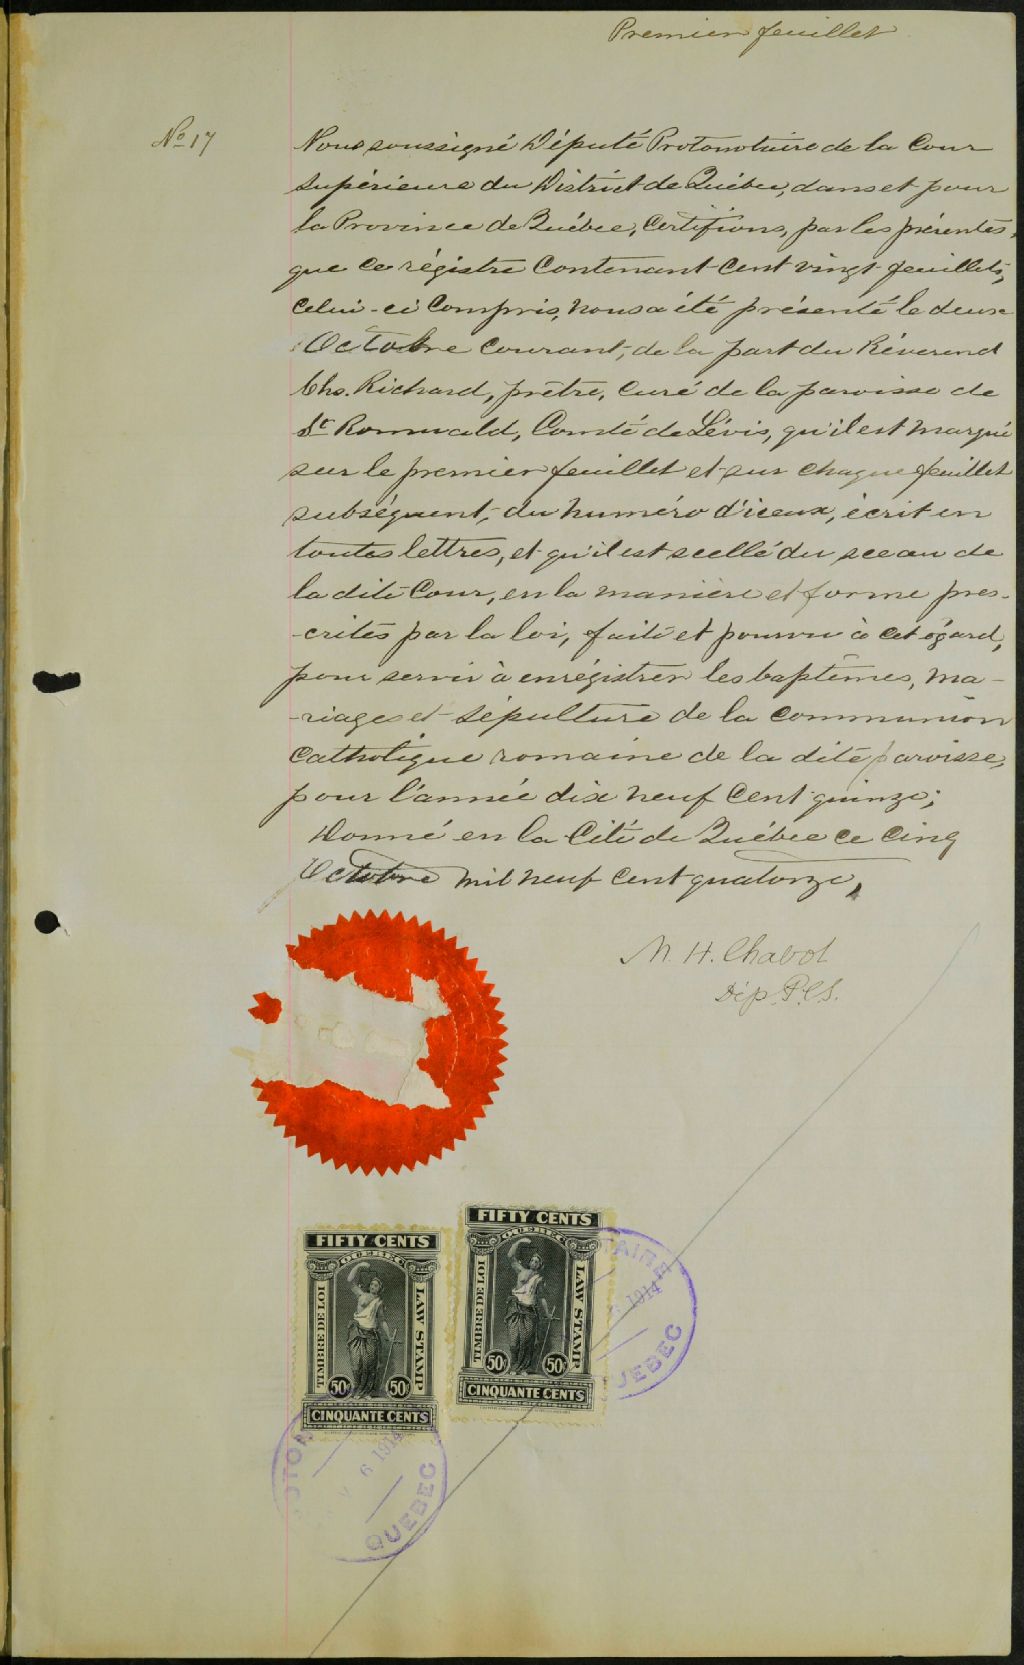 Premier feuillet
No 17
Nous soussigné Député Protonotaire de la Cour
supérieure du District de Québec, dans et pour
la Province de Québec, Certifions, par les présentes,
que ce régistre contenant cent vingt feuillets,
celui-ci compris, nous a été présenté le deux
Octobre courant, de la part du Réverend
Chs. Richard, prêtre, curé de la paroisse de
St Romuald, Comté de Lévis, qu'il est marqué
sur le premier feuillet et sur chaque feuillet
subséquent, du numéro d'iceux, écrit en
toutes lettres, et qu'il est scellé du sceau de
la dite Cour, en la manière et forme pres-
-crites par la loi, faite et pourvu à cet égard,
pour servir à enrégistrer les baptêmes, ma-
-riages et sépulture de la communion
Catholique romaine de la dite paroisse,
pour l'année dix neuf cent quinze;
Donné en la Cité de Québec ce cinq
Octobre mil neuf cent quatorze,
M. H. Chabot
Dép. P.C.S.
FIFTY CENTS
QUEBEC
TIMBRE DE LOI
LAW STAMP
50c 50c
CINQUANTE CENTS
FIFTY CENTS
QUEBEC
TIMBRE DE LOI
LAW STAMP
50c 50c
CINQUANTE CENTS
TAIRE
1914
UEBEC
OTON
V 6 1914
QUEBEC